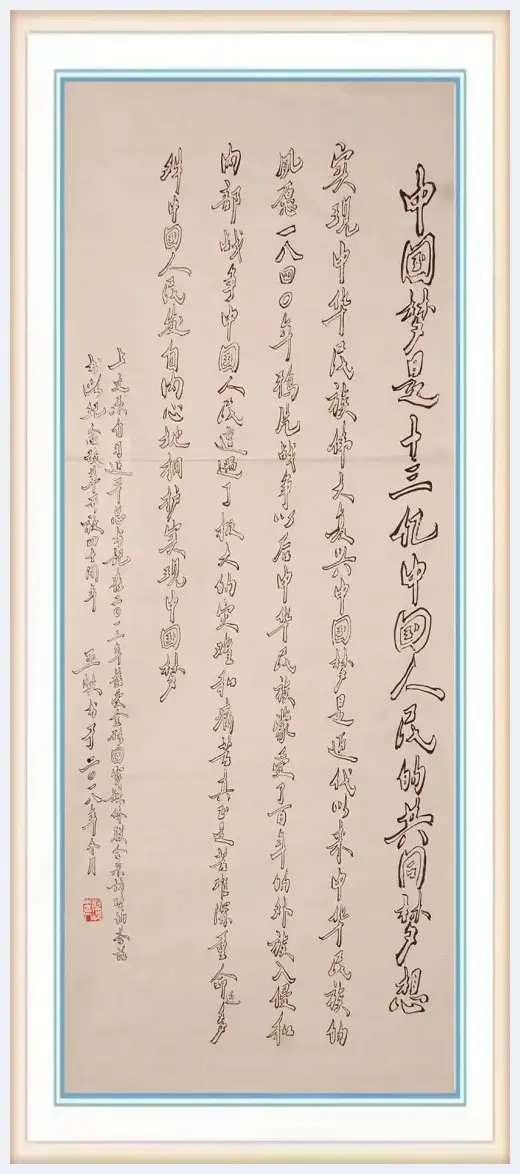 中国梦是十三亿中国人民的共同梦想
实现中华民族伟大复兴中国梦是近代以来中华民族的
夙愿一八四〇年鸦片战争以后中华民族蒙受了百年的外族入侵和
内部战争中国人民遭遇了极大的灾难和痛苦真正是苦难深重命运多
舛中国人民发自内心地拥护实现中国梦
上文来自习近平总书记二〇一三年接受金砖国家媒体联合采访时的答话
书此纪念改革开放四十周年 王 书于二〇一八年 月